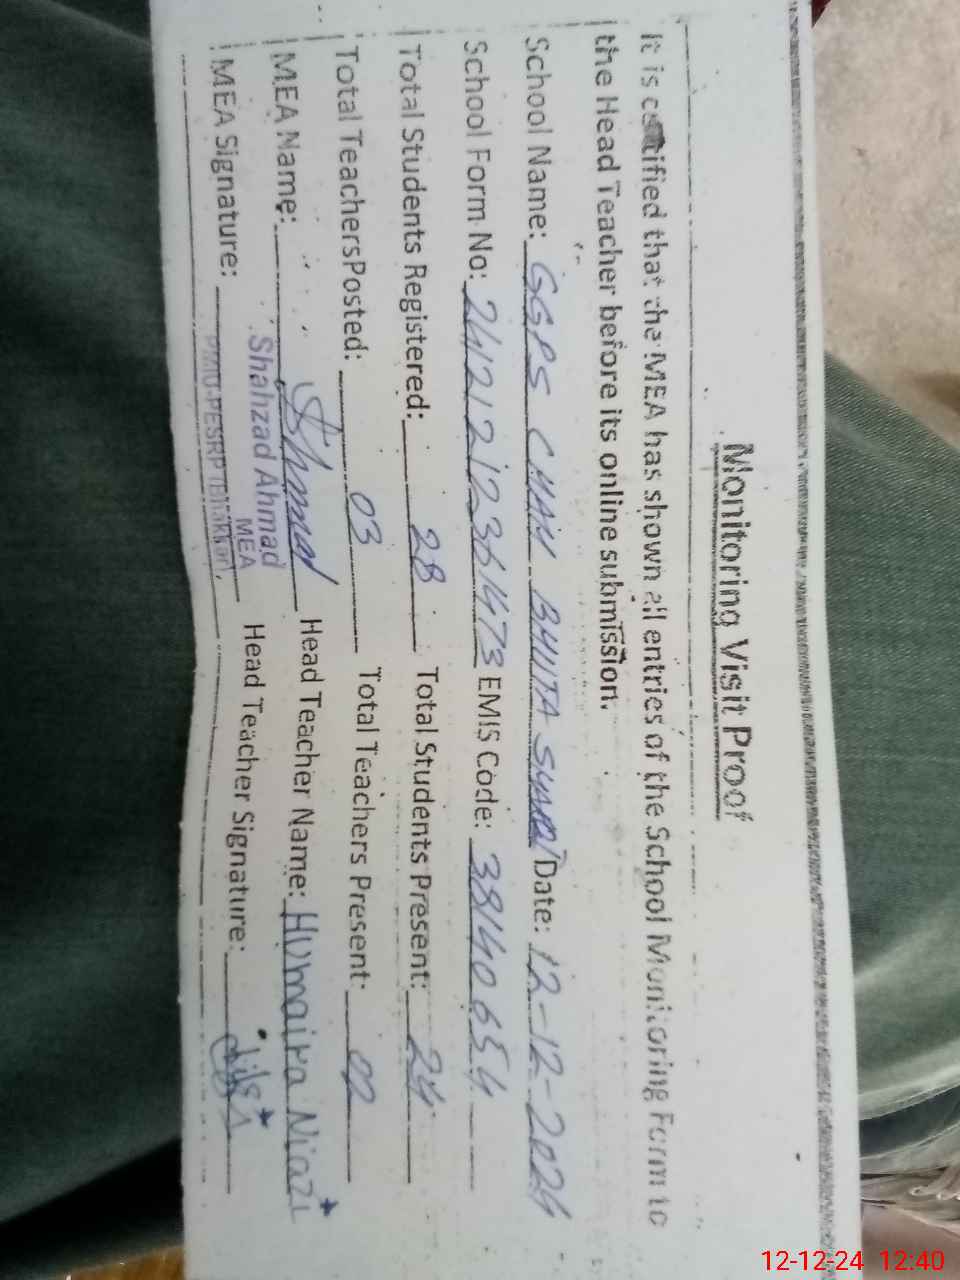 Monitoring Visit Proof
It is certified that the MEA has shown all entries of the School Monitoring Form to
the Head Teacher before its online submission.
School Name: GGPS CHAH BHUTA Date: 12-12-2024
School Form No: 24121212361473 EMIS Code: 38140654
Total Students Registered: 28 Total Students Present: 24
Total TeachersPosted: 03 Total Teachers Present: 02
MEA Name: Ahmad Head Teacher Name: Humaira Niazi
MEA Signature: Head Teacher Signature:
Shahzad Ahmad
MEA
PMIU-PESRP
12-12-24 12:40